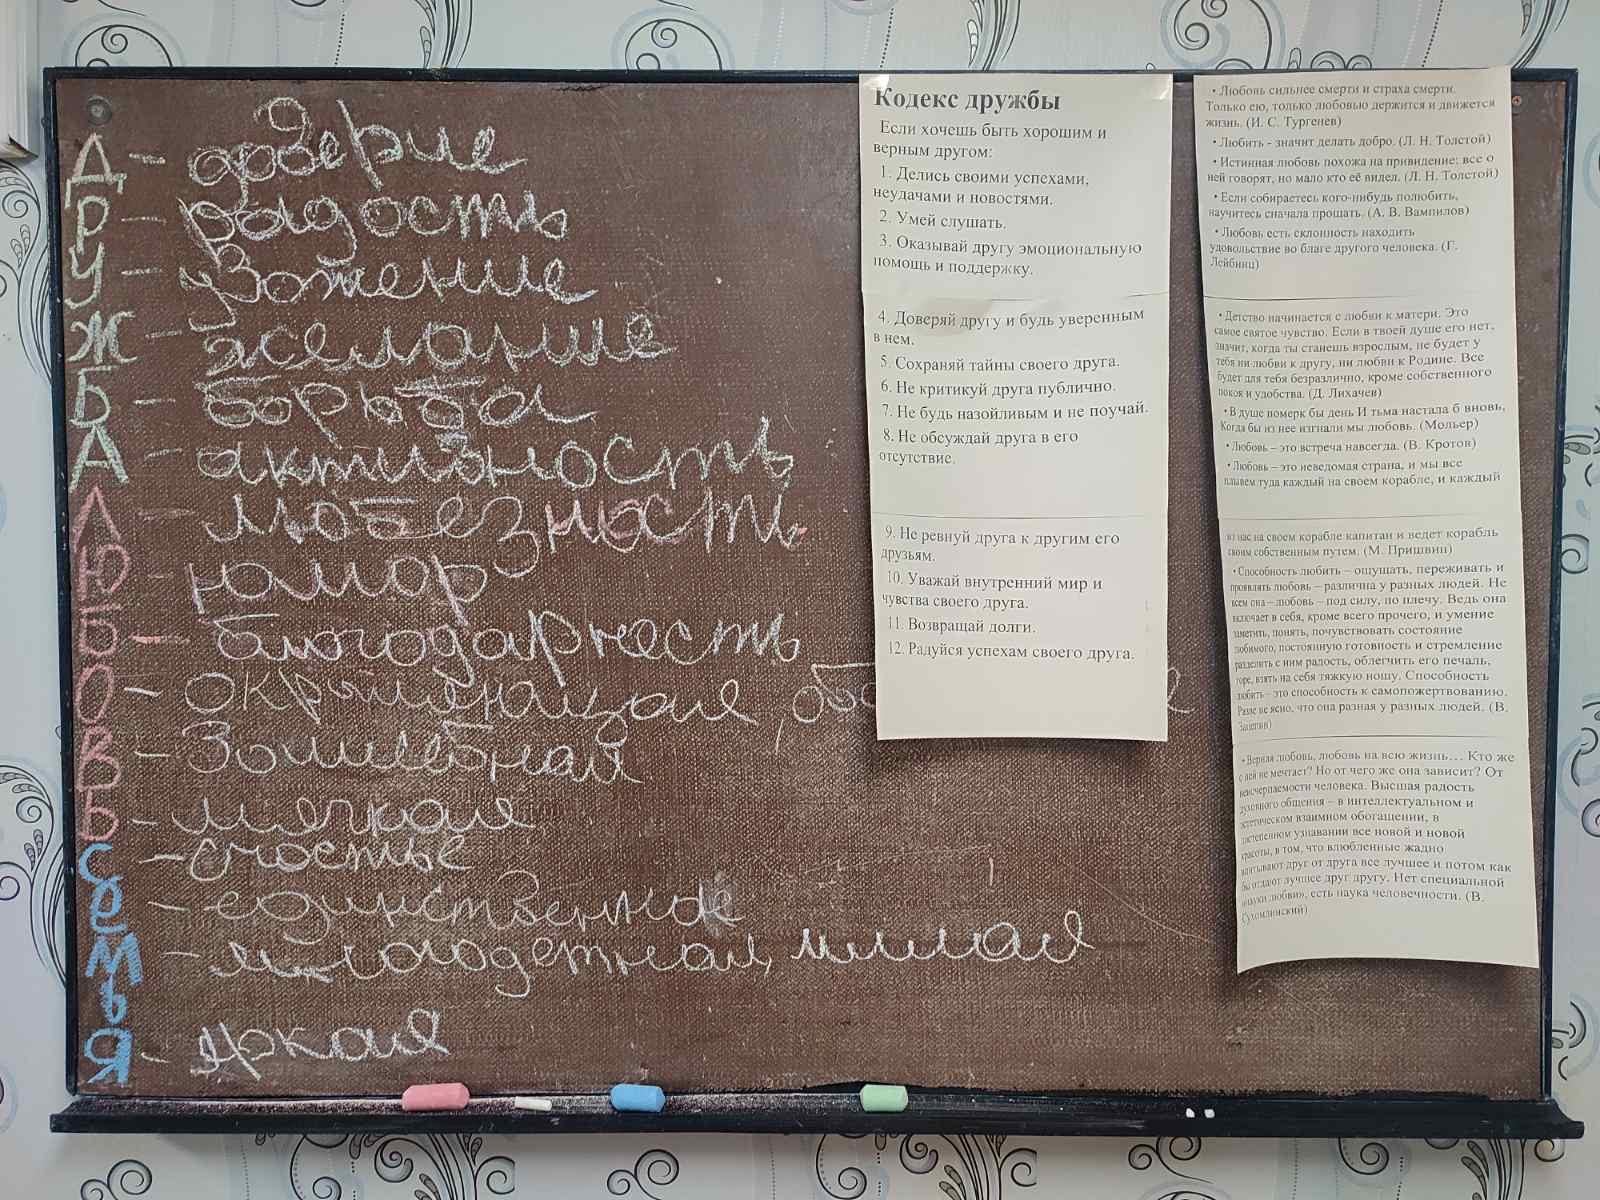 Д - доверие
Р - радость
У - уважение
Ж - желание
Б - борьба
А - активность
Л - любезность
Ю - юмор
Б - благодарность
О - окрыляющая,
В - волшебная
Ь - мягкая
С - счастье
Е - единственное
М - многодетная, милая
Ь
Я - яркая
Кодекс дружбы
Если хочешь быть хорошим и
верным другом:
1. Делись своими успехами,
неудачами и новостями.
2. Умей слушать.
3. Оказывай другу эмоциональную
помощь и поддержку.
4. Доверяй другу и будь уверенным
в нем.
5. Сохраняй тайны своего друга.
6. Не критикуй друга публично.
7. Не будь назойливым и не поучай.
8. Не обсуждай друга в его
отсутствие.
9. Не ревнуй друга к другим его
друзьям.
10. Уважай внутренний мир и
чувства своего друга.
11. Возвращай долги.
12. Радуйся успехам своего друга.
• Любовь сильнее смерти и страха смерти.
Только ею, только любовью держится и движется
жизнь. (И. С. Тургенев)
• Любить - значит делать добро. (Л. Н. Толстой)
• Истинная любовь похожа на привидение: все о
ней говорят, но мало кто её видел. (Л. Н. Толстой)
• Если собираетесь кого-нибудь полюбить,
научитесь сначала прощать. (А. В. Вампилов)
• Любовь есть склонность находить
удовольствие во благе другого человека. (Г.
Лейбниц)
• Детство начинается с любви к матери. Это
самое святое чувство. Если в твоей душе его нет,
значит, когда ты станешь взрослым, не будет у
тебя ни любви к другу, ни любви к Родине. Все
будет для тебя безразлично, кроме собственного
покоя и удобства. (Д. Лихачев)
• В душе померк бы день И тьма настала б вновь,
Когда бы из нее изгнали мы любовь. (Мольер)
• Любовь – это встреча навсегда. (В. Кротов)
• Любовь – это неведомая страна, и мы все
плывем туда каждый на своем корабле, и каждый
из нас на своем корабле капитан и ведет корабль
своим собственным путем. (М. Пришвин)
• Способность любить – ощущать, переживать и
проявлять любовь – различна у разных людей. Не
всем она – любовь – под силу, по плечу. Ведь она
включает в себя, кроме всего прочего, и умение
заметить, понять, почувствовать состояние
любимого, постоянную готовность и стремление
разделить с ним радость, облегчить его печаль,
горе, взять на себя тяжкую ношу. Способность
любить – это способность к самопожертвованию.
Разве не ясно, что она разная у разных людей. (В.
• Верная любовь, любовь на всю жизнь… Кто же
о ней не мечтает? Но от чего же она зависит? От
неисчерпаемости человека. Высшая радость
духовного общения – в интеллектуальном и
эстетическом взаимном обогащении, в
постепенном узнавании все новой и новой
красоты, в том, что влюбленные жадно
впитывают друг от друга все лучшее и потом как
бы отдают лучшее друг другу. Нет специальной
«науки любви», есть наука человечности. (В.
Сухомлинский)